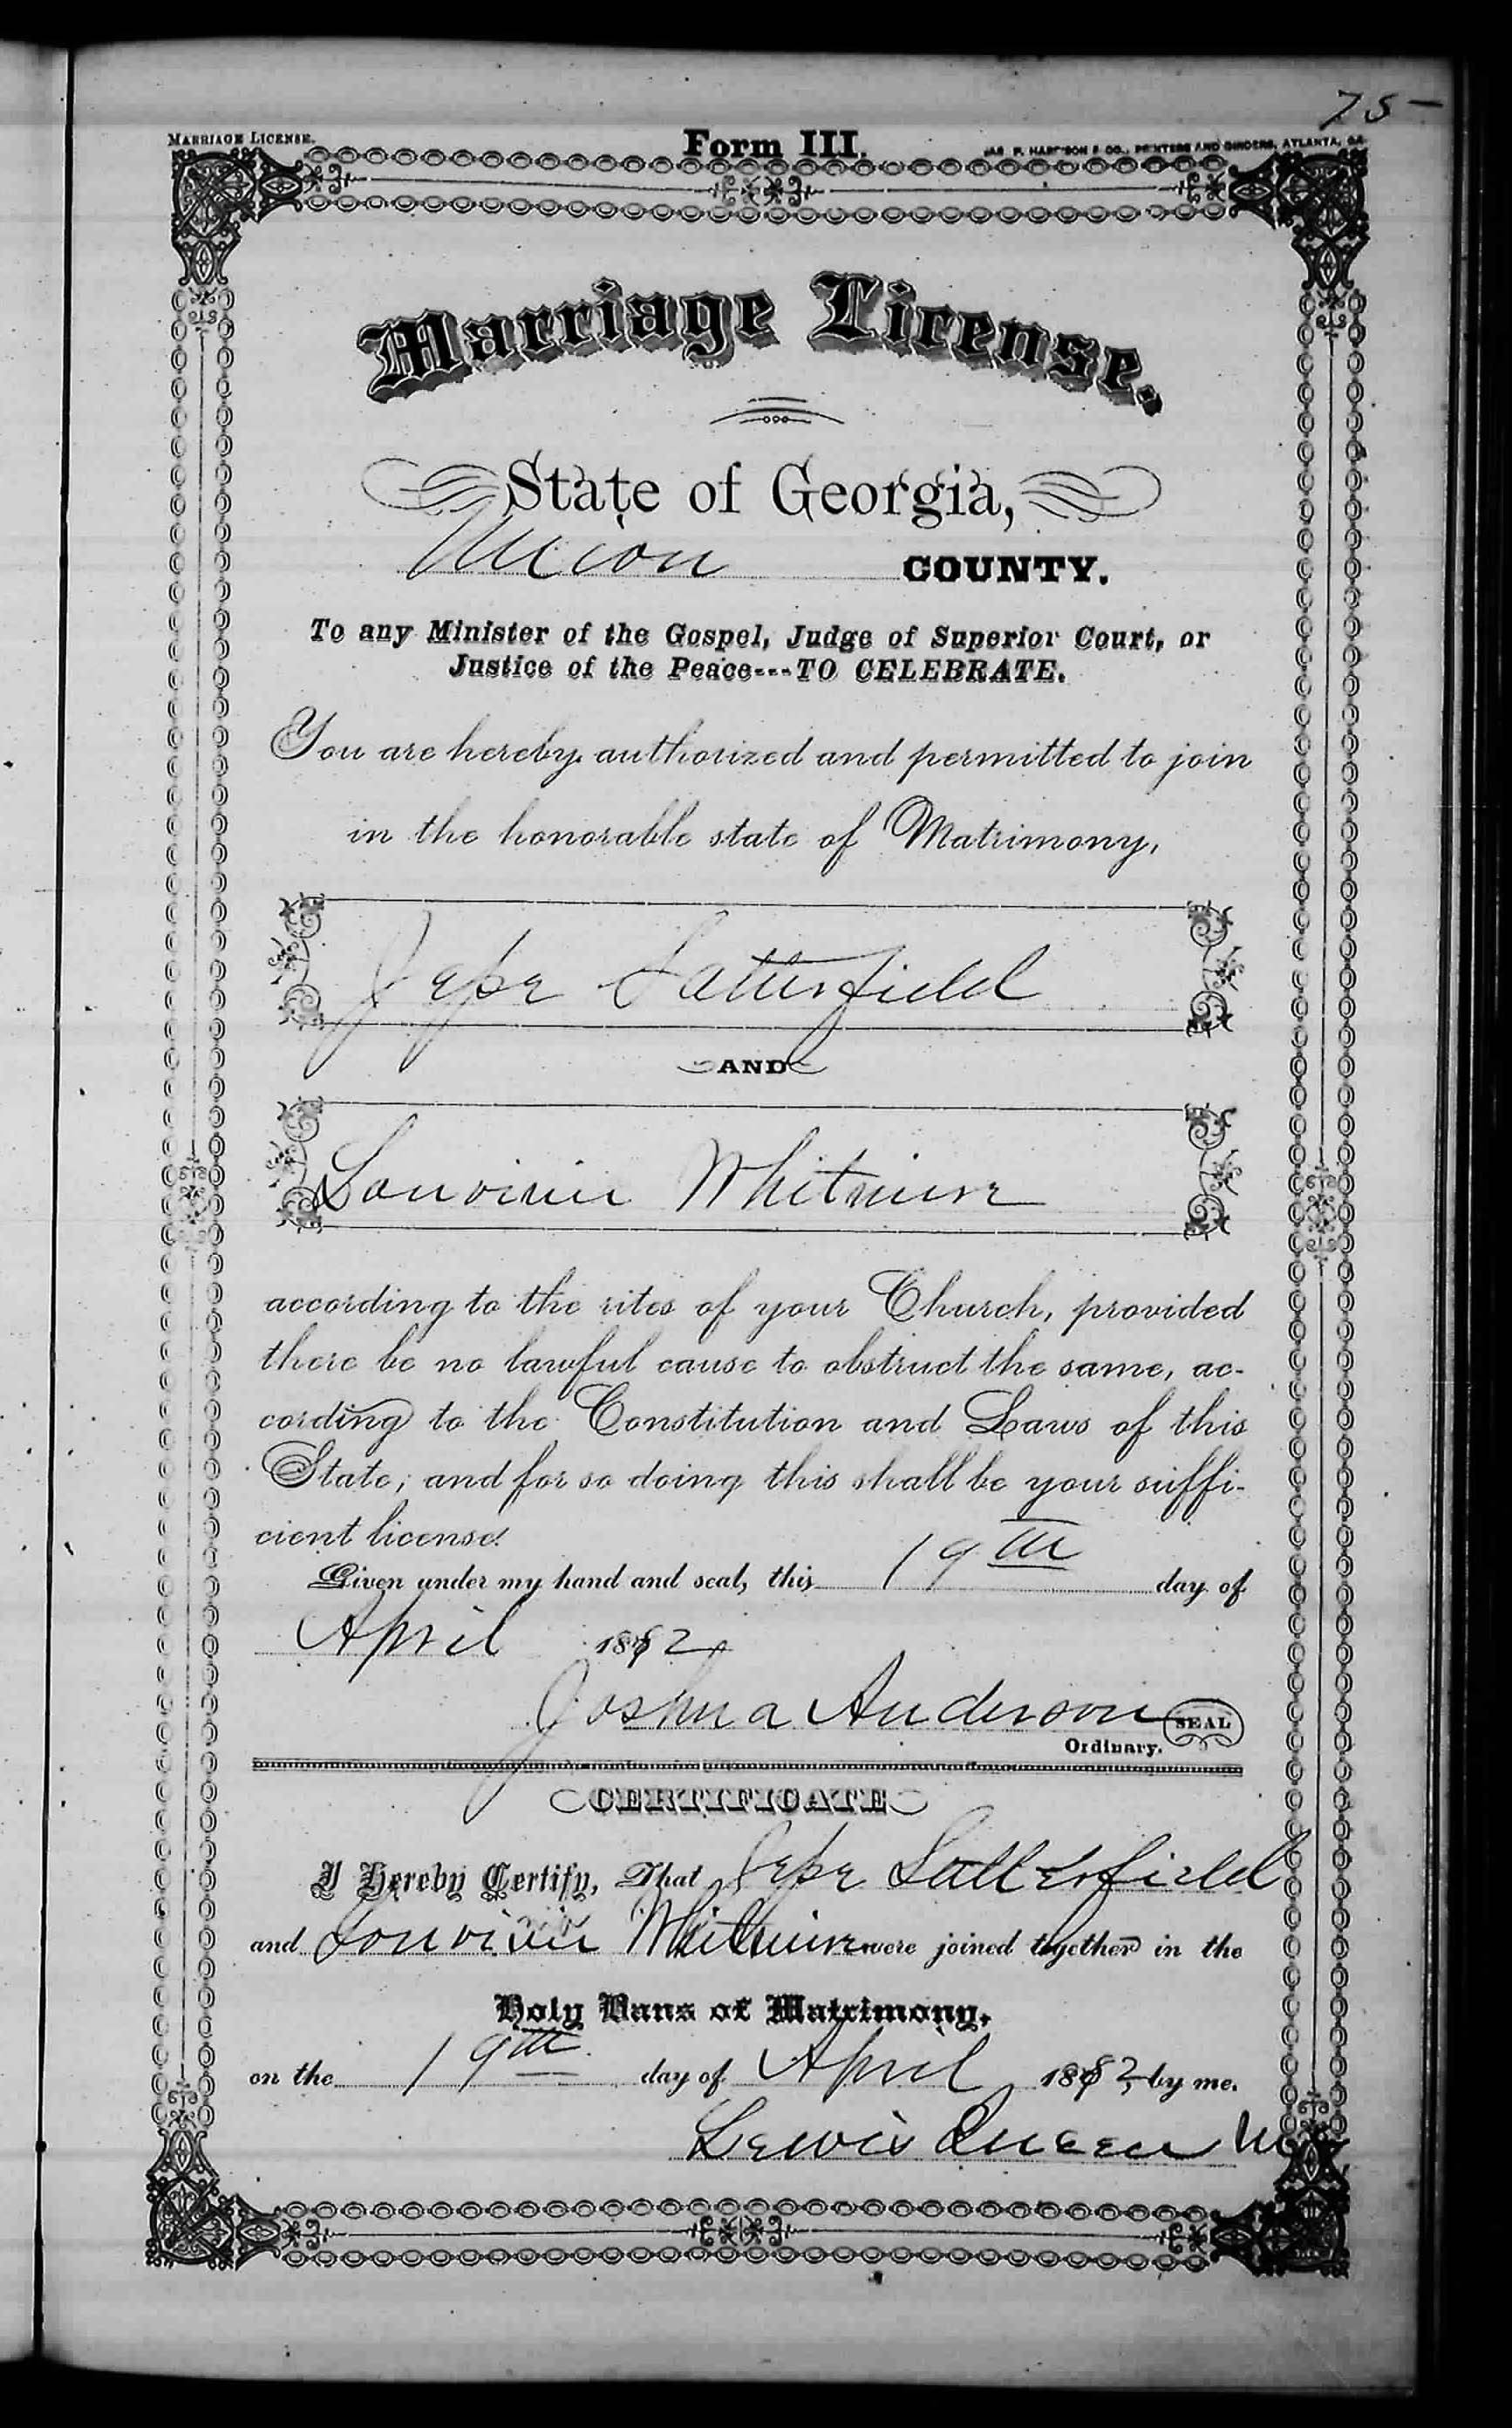 75-
MARRIAGE LICENSE.
Form III.
JAS. P. HARRISON & CO., PRINTERS AND BINDERS, ATLANTA, GA.
Marriage License.
State of Georgia,
Union COUNTY.
To any Minister of the Gospel, Judge of Superior Court, or
Justice of the Peace---TO CELEBRATE.
You are hereby authorized and permitted to join
in the honorable state of Matrimony,
Jesse Satterfield
AND
Louvinie Whitmire
according to the rites of your Church, provided
there be no lawful cause to obstruct the same, ac-
cording to the Constitution and Laws of this
State; and for so doing this shall be your suffi-
cient license.
Given under my hand and seal, this 19th day of
April 1882
Joshua Anderson SEAL
Ordinary.
CERTIFICATE
I Hereby Certify, That Jesse Satterfield
and Louvinie Whitmire were joined together in the
Holy Bans of Matrimony,
on the 19th day of April 1882, by me.
Lewis Queen